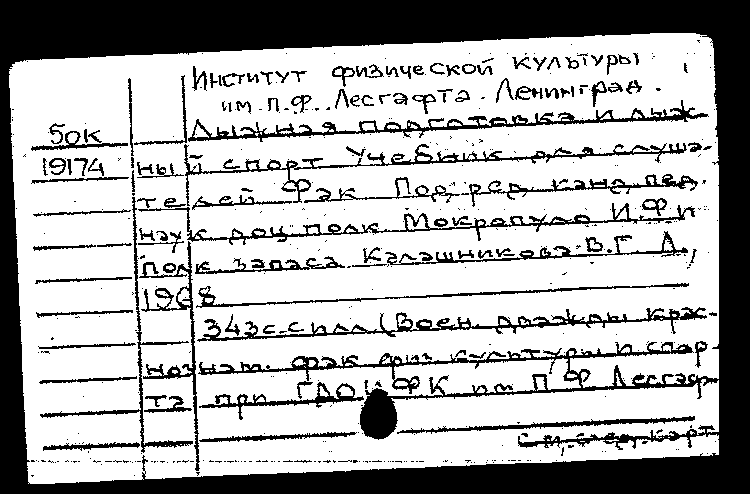 Институт физической культуры
им. П.Ф. Лесгафта. Ленинград.
50к Лыжная подготовка и лыж-
19174 ный спорт Учебник для слуша-
телей Фак Под ред канд. пед.
наук доц полк Мокропуло И.Ф и
полк запаса Калашникова В.Г Л.,
1968
343с. с илл (Воен. дважды крас-
нознам. фак физ. культуры и спор-
та при ГДОИФК им П Ф Лесгаф-
см. след. карт